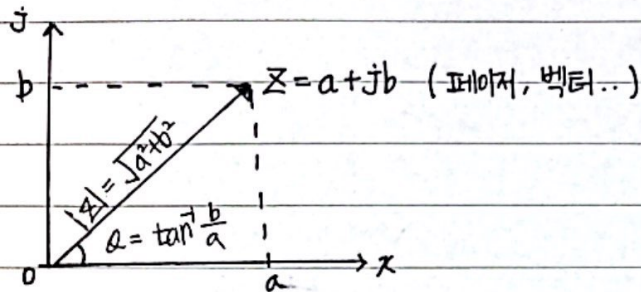 j
b
Z = a + jb (페이저, 벡터...)
|Z| = √a²+b²
θ = tan⁻¹ b/a
0
a
x